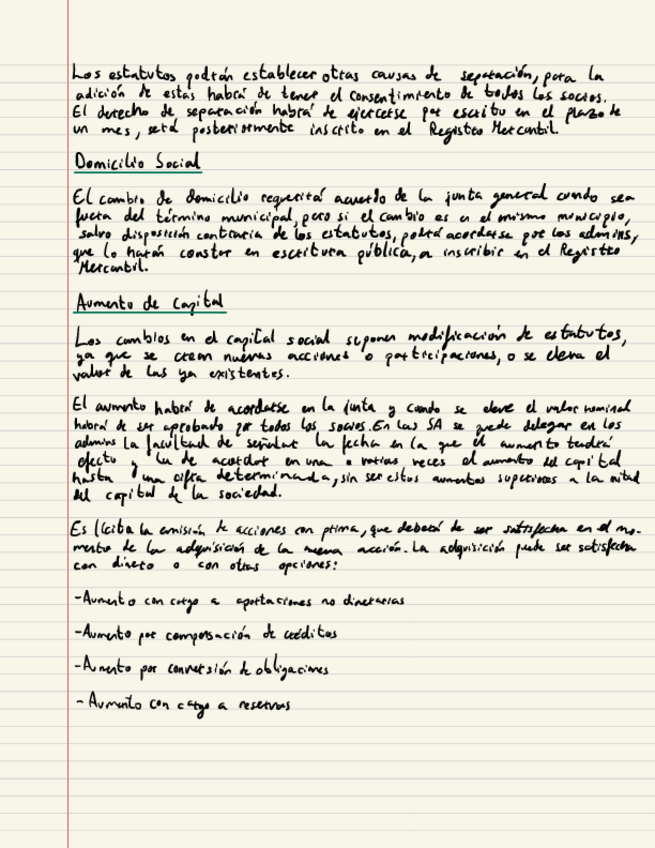 Los estatutos podrán establecer otras causas de separación, para la
adición de estas habrá de tener el consentimiento de todos los socios.
El derecho de separación habrá de ejercerse por escrito en el plazo de
un mes, será posteriormente inscrito en el Registro Mercantil.
Domicilio Social
El cambio de domicilio requerirá acuerdo de la junta general cuando sea
fuera del término municipal, pero si el cambio es en el mismo municipio,
salvo disposición contraria de los estatutos, podrá acordarse por los admins,
que lo harán constar en escritura pública, a inscribir en el Registro
Mercantil.
Aumento de Capital
Los cambios en el capital social suponen modificación de estatutos,
ya que se crean nuevas acciones o participaciones, o se eleva el
valor de las ya existentes.
El aumento habrá de acordarse en la junta y cuando se eleve el valor nominal
habrá de ser aprobado por todos los socios. En las SA se puede delegar en los
admins la facultad de señalar la fecha en la que el aumento tendrá
efecto y la de acordar en una o varias veces el aumento del capital
hasta una cifra determinada, sin ser estos aumentos superiores a la mitad
del capital de la sociedad.
Es lícita la emisión de acciones con prima, que deberá de ser satisfecha en el mo-
mento de la adquisición de la nueva acción. La adquisición puede ser satisfecha
con dinero o con otras opciones:
-Aumento con cargo a aportaciones no dinerarias
-Aumento por compensación de créditos
-Aumento por conversión de obligaciones
-Aumento con cargo a reservas